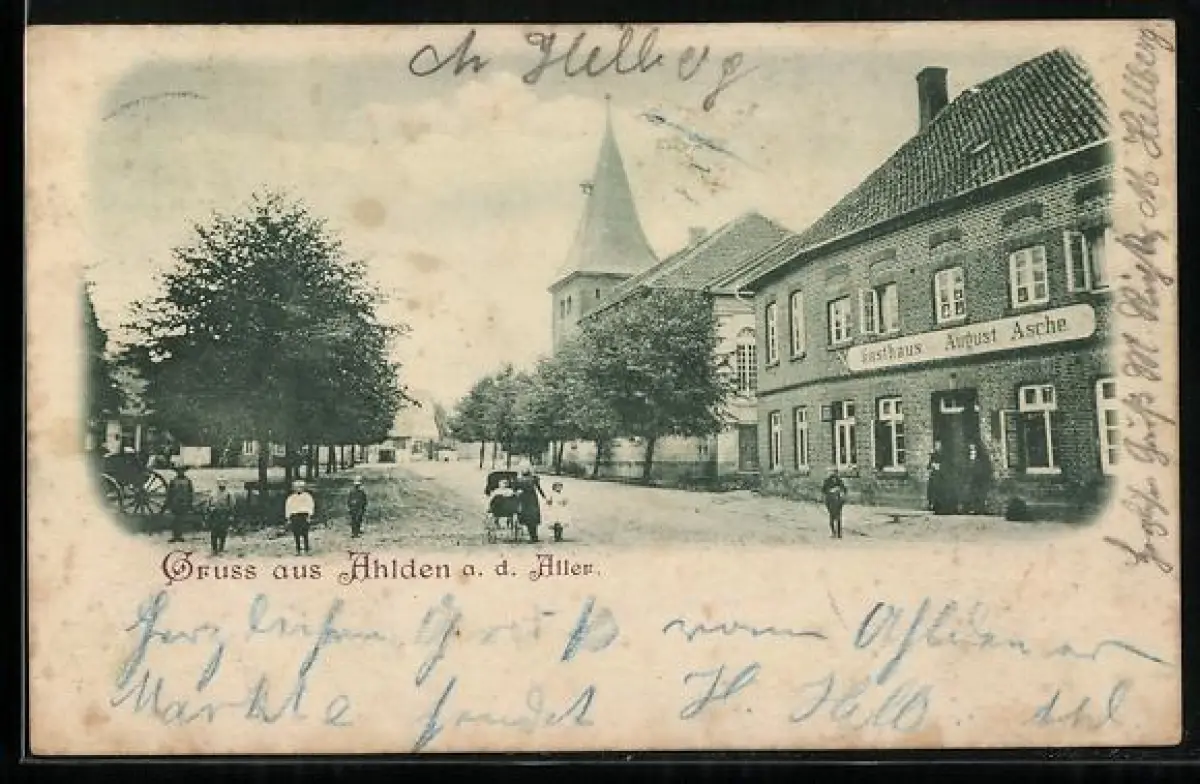 Helberg
Gasthaus August Asche
Gruss aus Ahlden a. d. Aller.
Herzlichen Gruß vom Ahldener
Markte sendet H. Hell
Gruß M M Hellberg